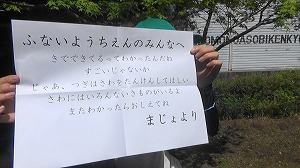 ふないようちえんのみんなへ
きでできてるってわかったんだね
すごいじゃないか
じゃあ、つぎはさわをたんけんしてほしい
さわにはいろんないきものがいるよ
またわかったらおしえてね
まじょより